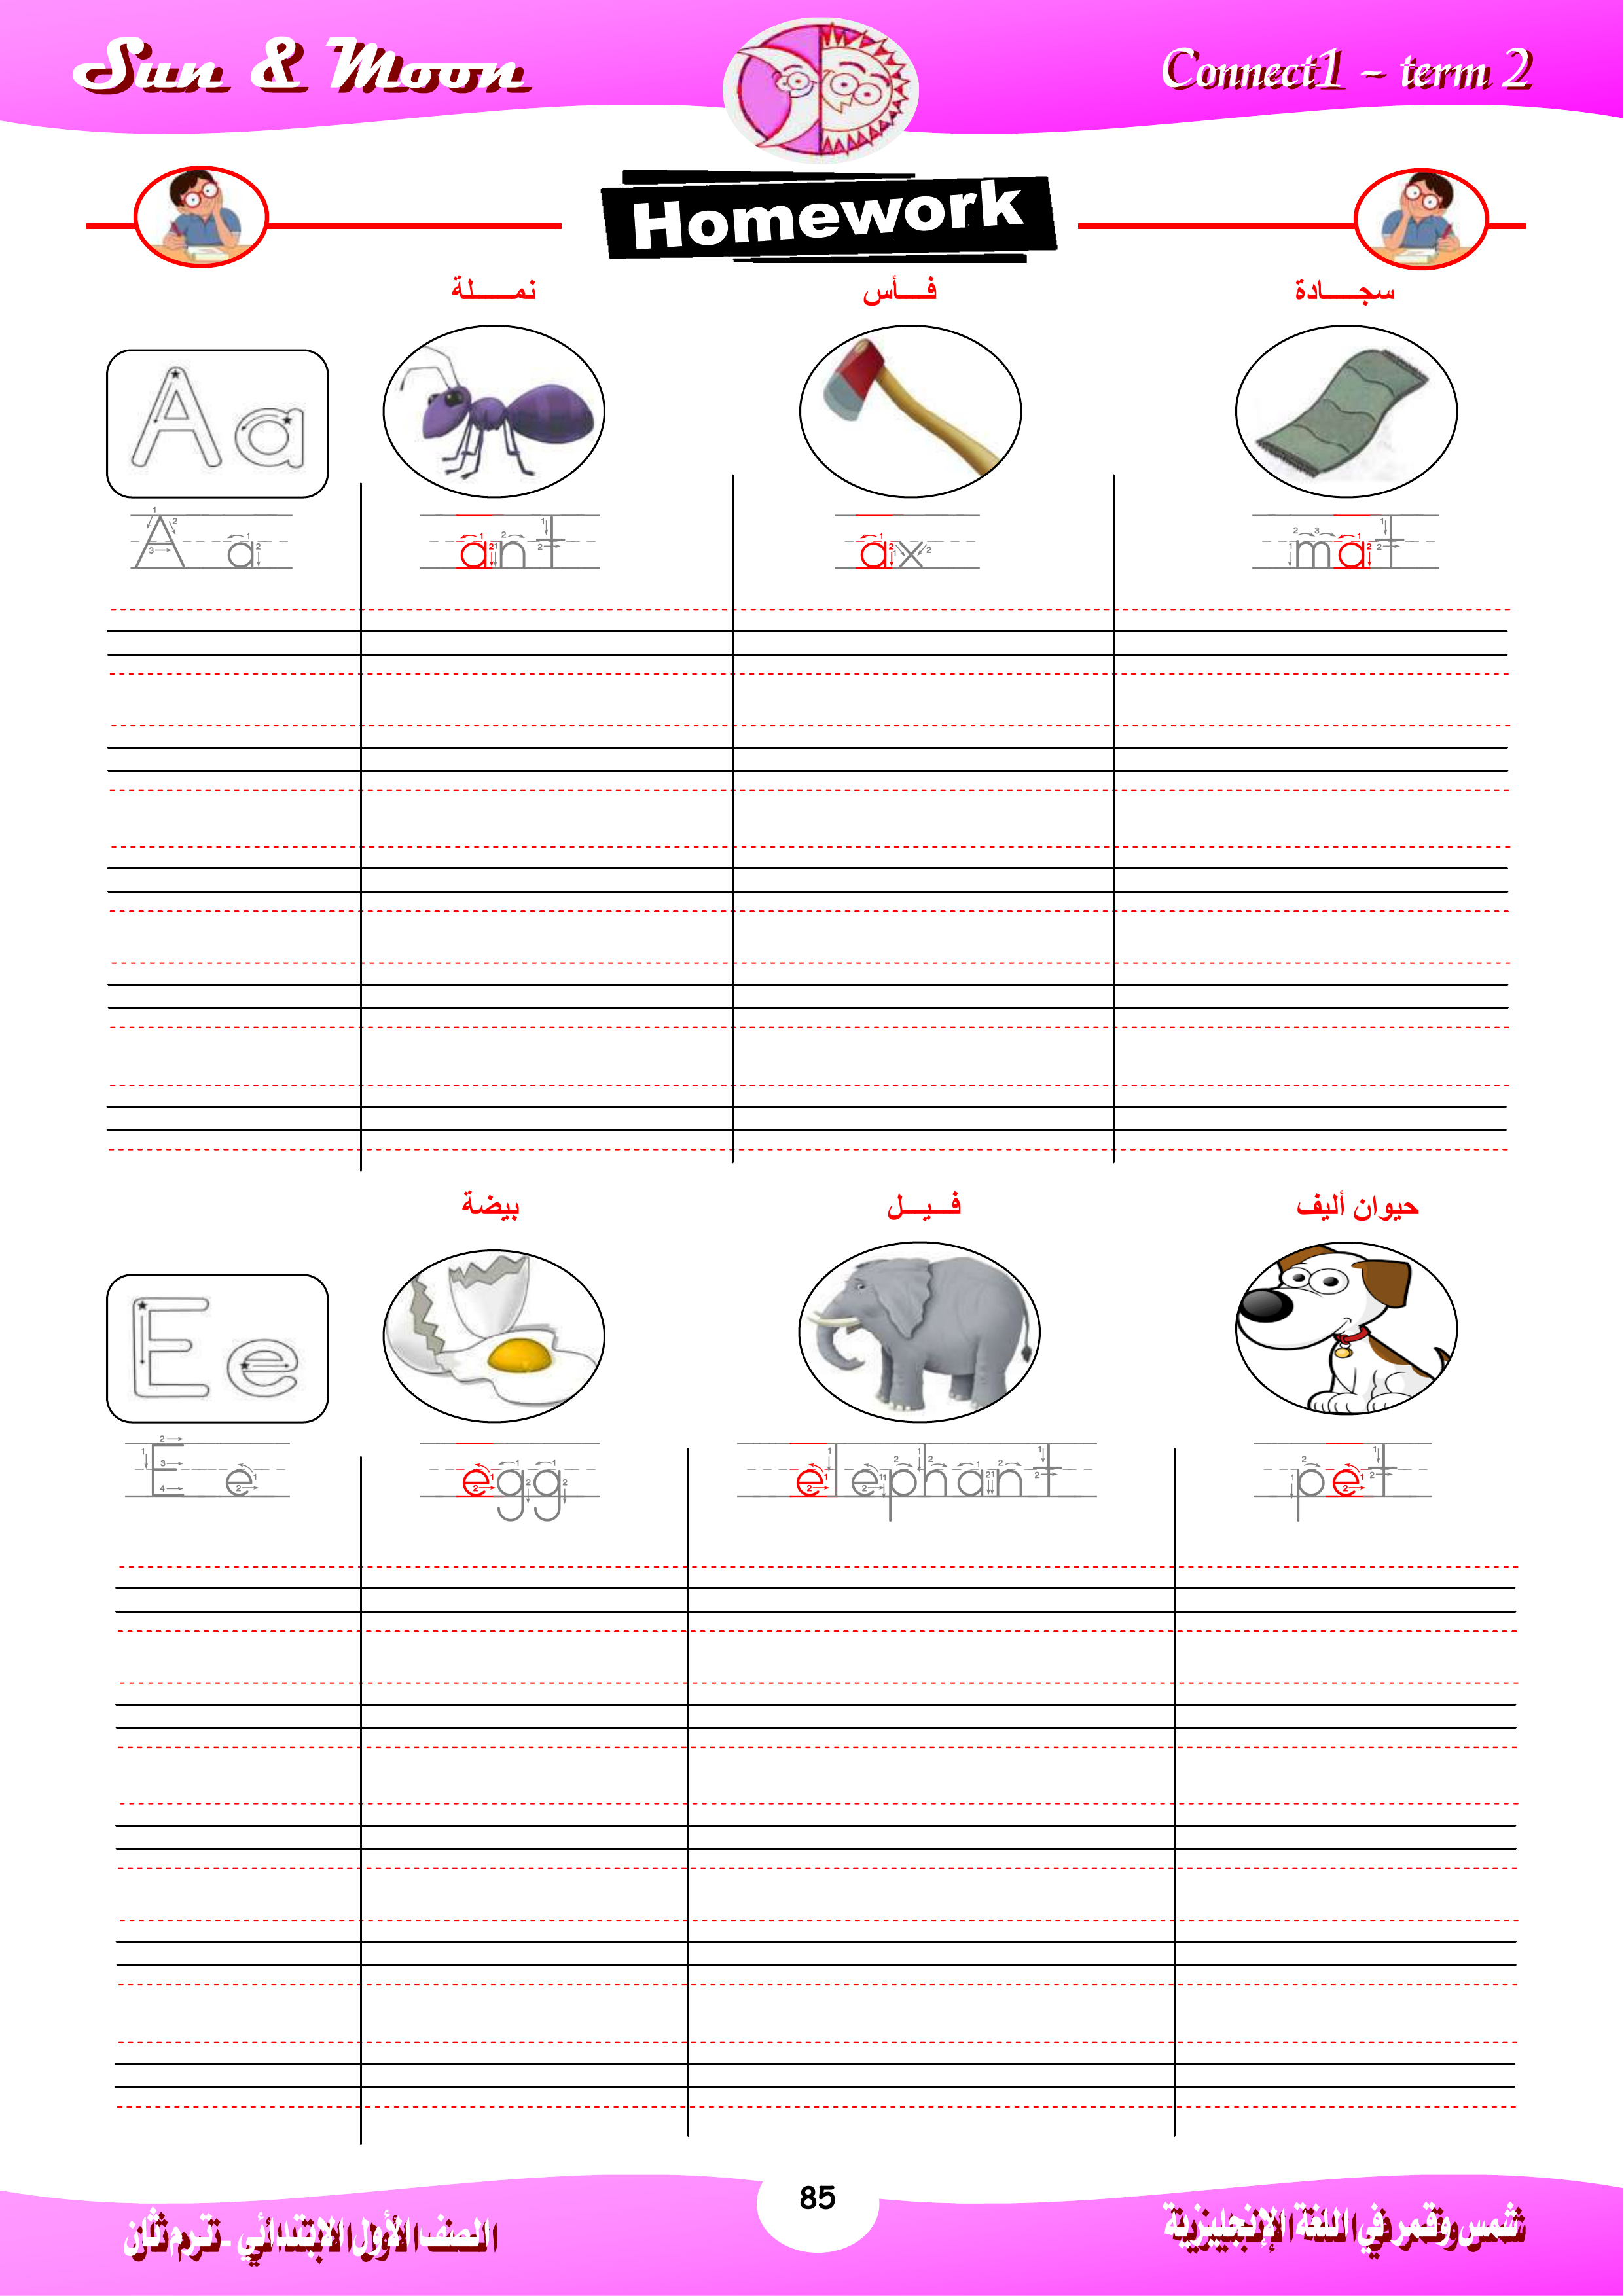 Sun & Moon
Connect1 - term 2
Homework
نمـــلة
فـــأس
سجـــادة
A a
A a
ant
ax
mat
بيضة
فـــيـــل
حيوان أليف
E e
E e
egg
elephant
pet
85
الصف الأول الابتدائي - ترم ثان
شمس وقمر في اللغة الإنجليزية